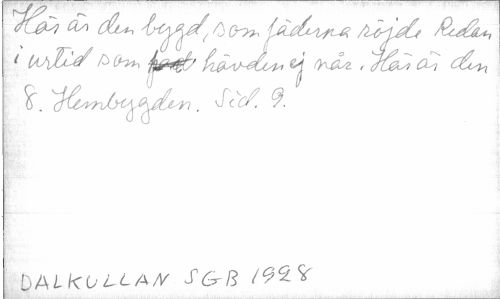 Här är den bygd, som fäderna röjde Redan
i urtid som hävden ej når. Här är den
8. Hembygden. Sid. 9.
DALKULLAN SGB 1928